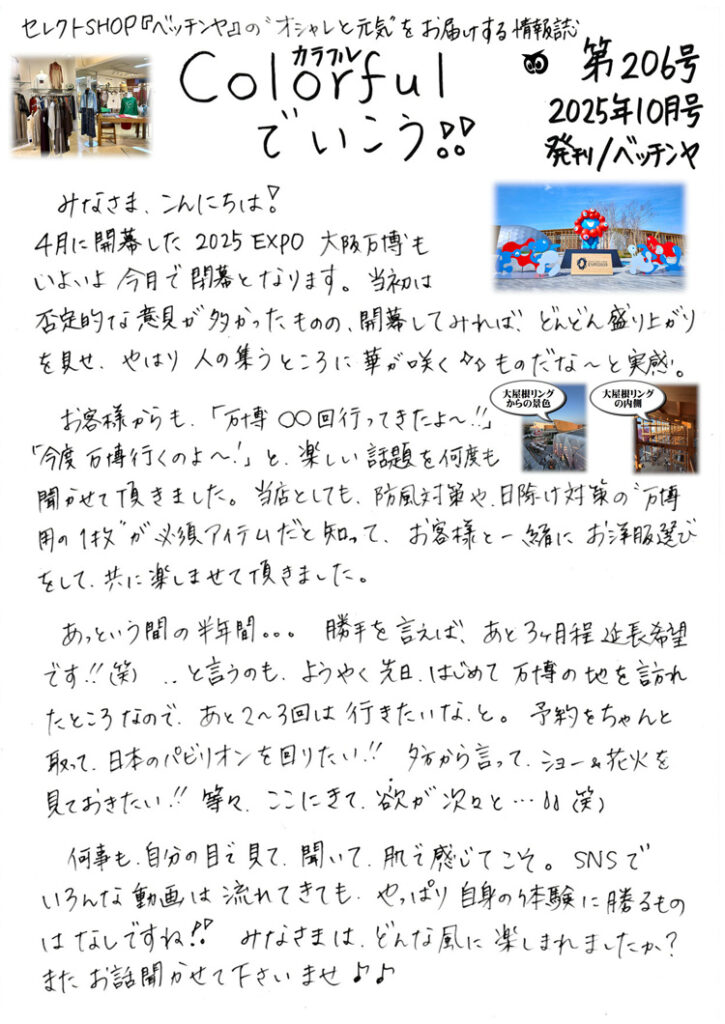 セレクトSHOP『ベッチンヤ』の“オシャレと元気”をお届けする情報誌
カラフル
Colorful
でいこう!!
第206号
2025年10月号
発刊/ベッチンヤ
みなさま、こんにちは!
4月に開幕した 2025 EXPO 大阪万博も
いよいよ 今月で閉幕となります。当初は
否定的な意見が多かったものの、開幕してみれば、どんどん盛り上がり
を見せ、やはり 人の集うところに 華が咲く ものだな〜と実感。
大屋根リング
からの景色
大屋根リング
の内側
お客様からも、「万博 ○○回行ってきたよ〜!!」
「今度 万博行くのよ〜!」と、楽しい話題を何度も
聞かせて頂きました。当店としても、防風対策や、日除け対策の“万博
用の1枚”が必須アイテムだと知って、お客様と一緒に お洋服選び
をして、共に楽しませて頂きました。
あっという間の半年間。。。 勝手を言えば、あと3ヶ月程 延長希望
です!!(笑) ..と言うのも、ようやく先日、はじめて 万博の地を訪れ
たところなので、あと2〜3回は 行きたいな、と。予約をちゃんと
取って、日本のパビリオンを回りたい!! 夕方から言って、ショー&花火を
見ておきたい!! 等々、ここにきて、欲が次々と…♪♪(笑)
何事も、自分の目で見て、聞いて、肌で感じてこそ。SNSで
いろんな動画は流れてきても、やっぱり自身の体験に勝るもの
はなしですね!! みなさまは、どんな風に楽しまれましたか?
また お話聞かせて下さいませ♪♪